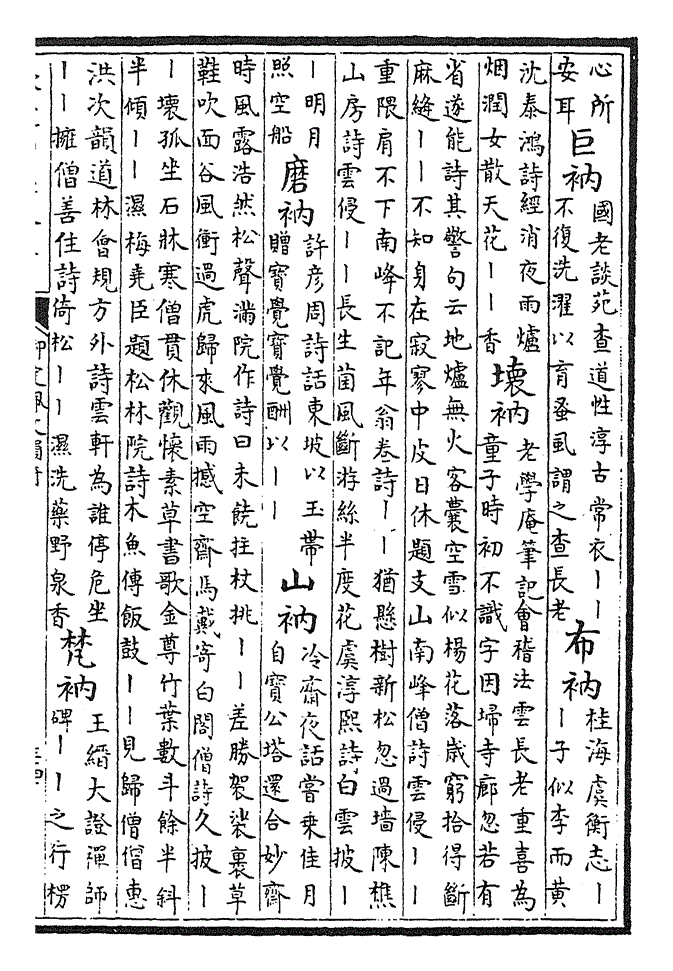 心所
安耳
巨衲
國老談苑查道性淳古常衣丨丨
不復洗濯以育蚤虱謂之查長老
布衲
桂海虞衡志丨
丨子似李而黃
沈泰鴻詩經消夜雨爐
烟潤女散天花丨丨香
壞衲
老學庵筆記會稽法雲長老重喜為
童子時初不識字因埽寺廊忽若有
省遂能詩其警句云地爐無火客囊空雪似楊花落歲窮拾得斷
麻縫丨丨不知身在寂寥中皮日休題支山南峰僧詩雲侵丨丨
重隈肩不下南峰不記年翁卷詩丨丨猶懸樹新松忽過墻陳樵
山房詩雲侵丨丨長生菌風斷游絲半度花虞淳熙詩白雲披丨
丨明月
照空船
磨衲
許彦周詩話東坡以玉帶
贈寶覺寶覺酬以丨丨
山衲
冷齋夜話嘗乗佳月
自寶公塔還合妙齊
時風露浩然松聲滿院作詩曰未饒拄杖挑丨丨差勝袈裟裹草
鞋吹面谷風衝過虎歸來風雨撼空齋馬戴寄白閣僧詩久披丨
丨壞孤坐石牀寒僧貫休觀懷素草書歌金尊竹葉數斗餘半斜
半傾丨丨濕梅堯臣題松林院詩木魚傳飯鼓丨丨見歸僧僧惠
洪次韻道林會規方外詩雲軒為誰停危坐
丨丨擁僧善住詩倚松丨丨濕洗藥野泉香
梵衲
王縉大證禪師
碑丨丨之行楞